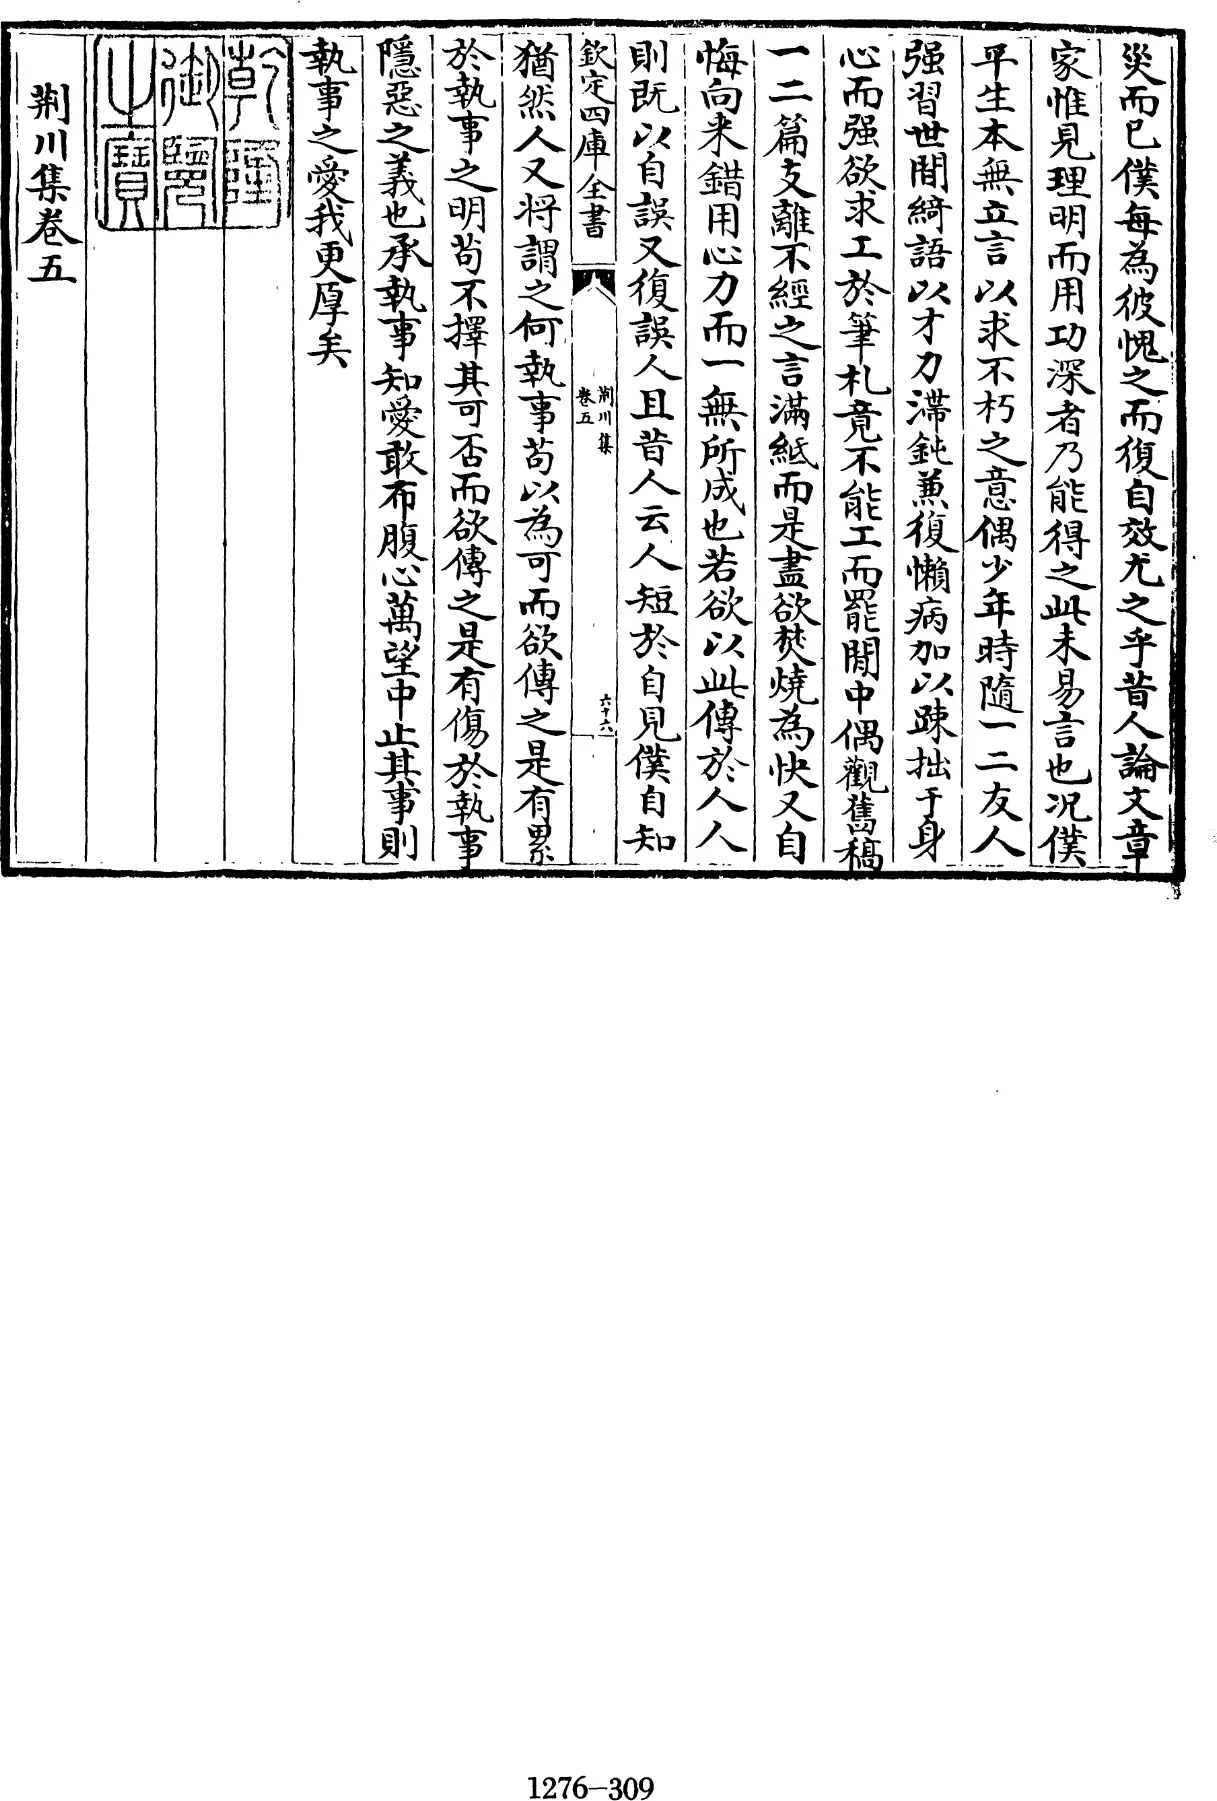 災而已僕每為彼愧之而復自效尤之乎昔人論文章
家惟見理明而用功深者乃能得之此未易言也況僕
平生本無立言以求不朽之意偶少年時隨一二友人
强習世間綺語以才力滯鈍蒹復懶病加以踈拙于身
心而强欲求工於筆札竟不能工而罷閒中偶觀舊稿
一二篇支離不經之言滿紙而是盡欲焚燒為快又自
悔向来錯用心力而一無所成也若欲以此傳於人人
則既以自誤又復誤人且昔人云人短於自見僕自知
欽定四庫全書
荆川集
卷五
六十六
猶然人又将謂之何執事苟以為可而欲傳之是有累
於執事之明苟不擇其可否而欲傳之是有傷於執事
隱惡之義也承執事知愛敢布腹心萬望中止其事則
執事之愛我更厚矣
乾隆
御覽
之寶
荆川集卷五
1276-309